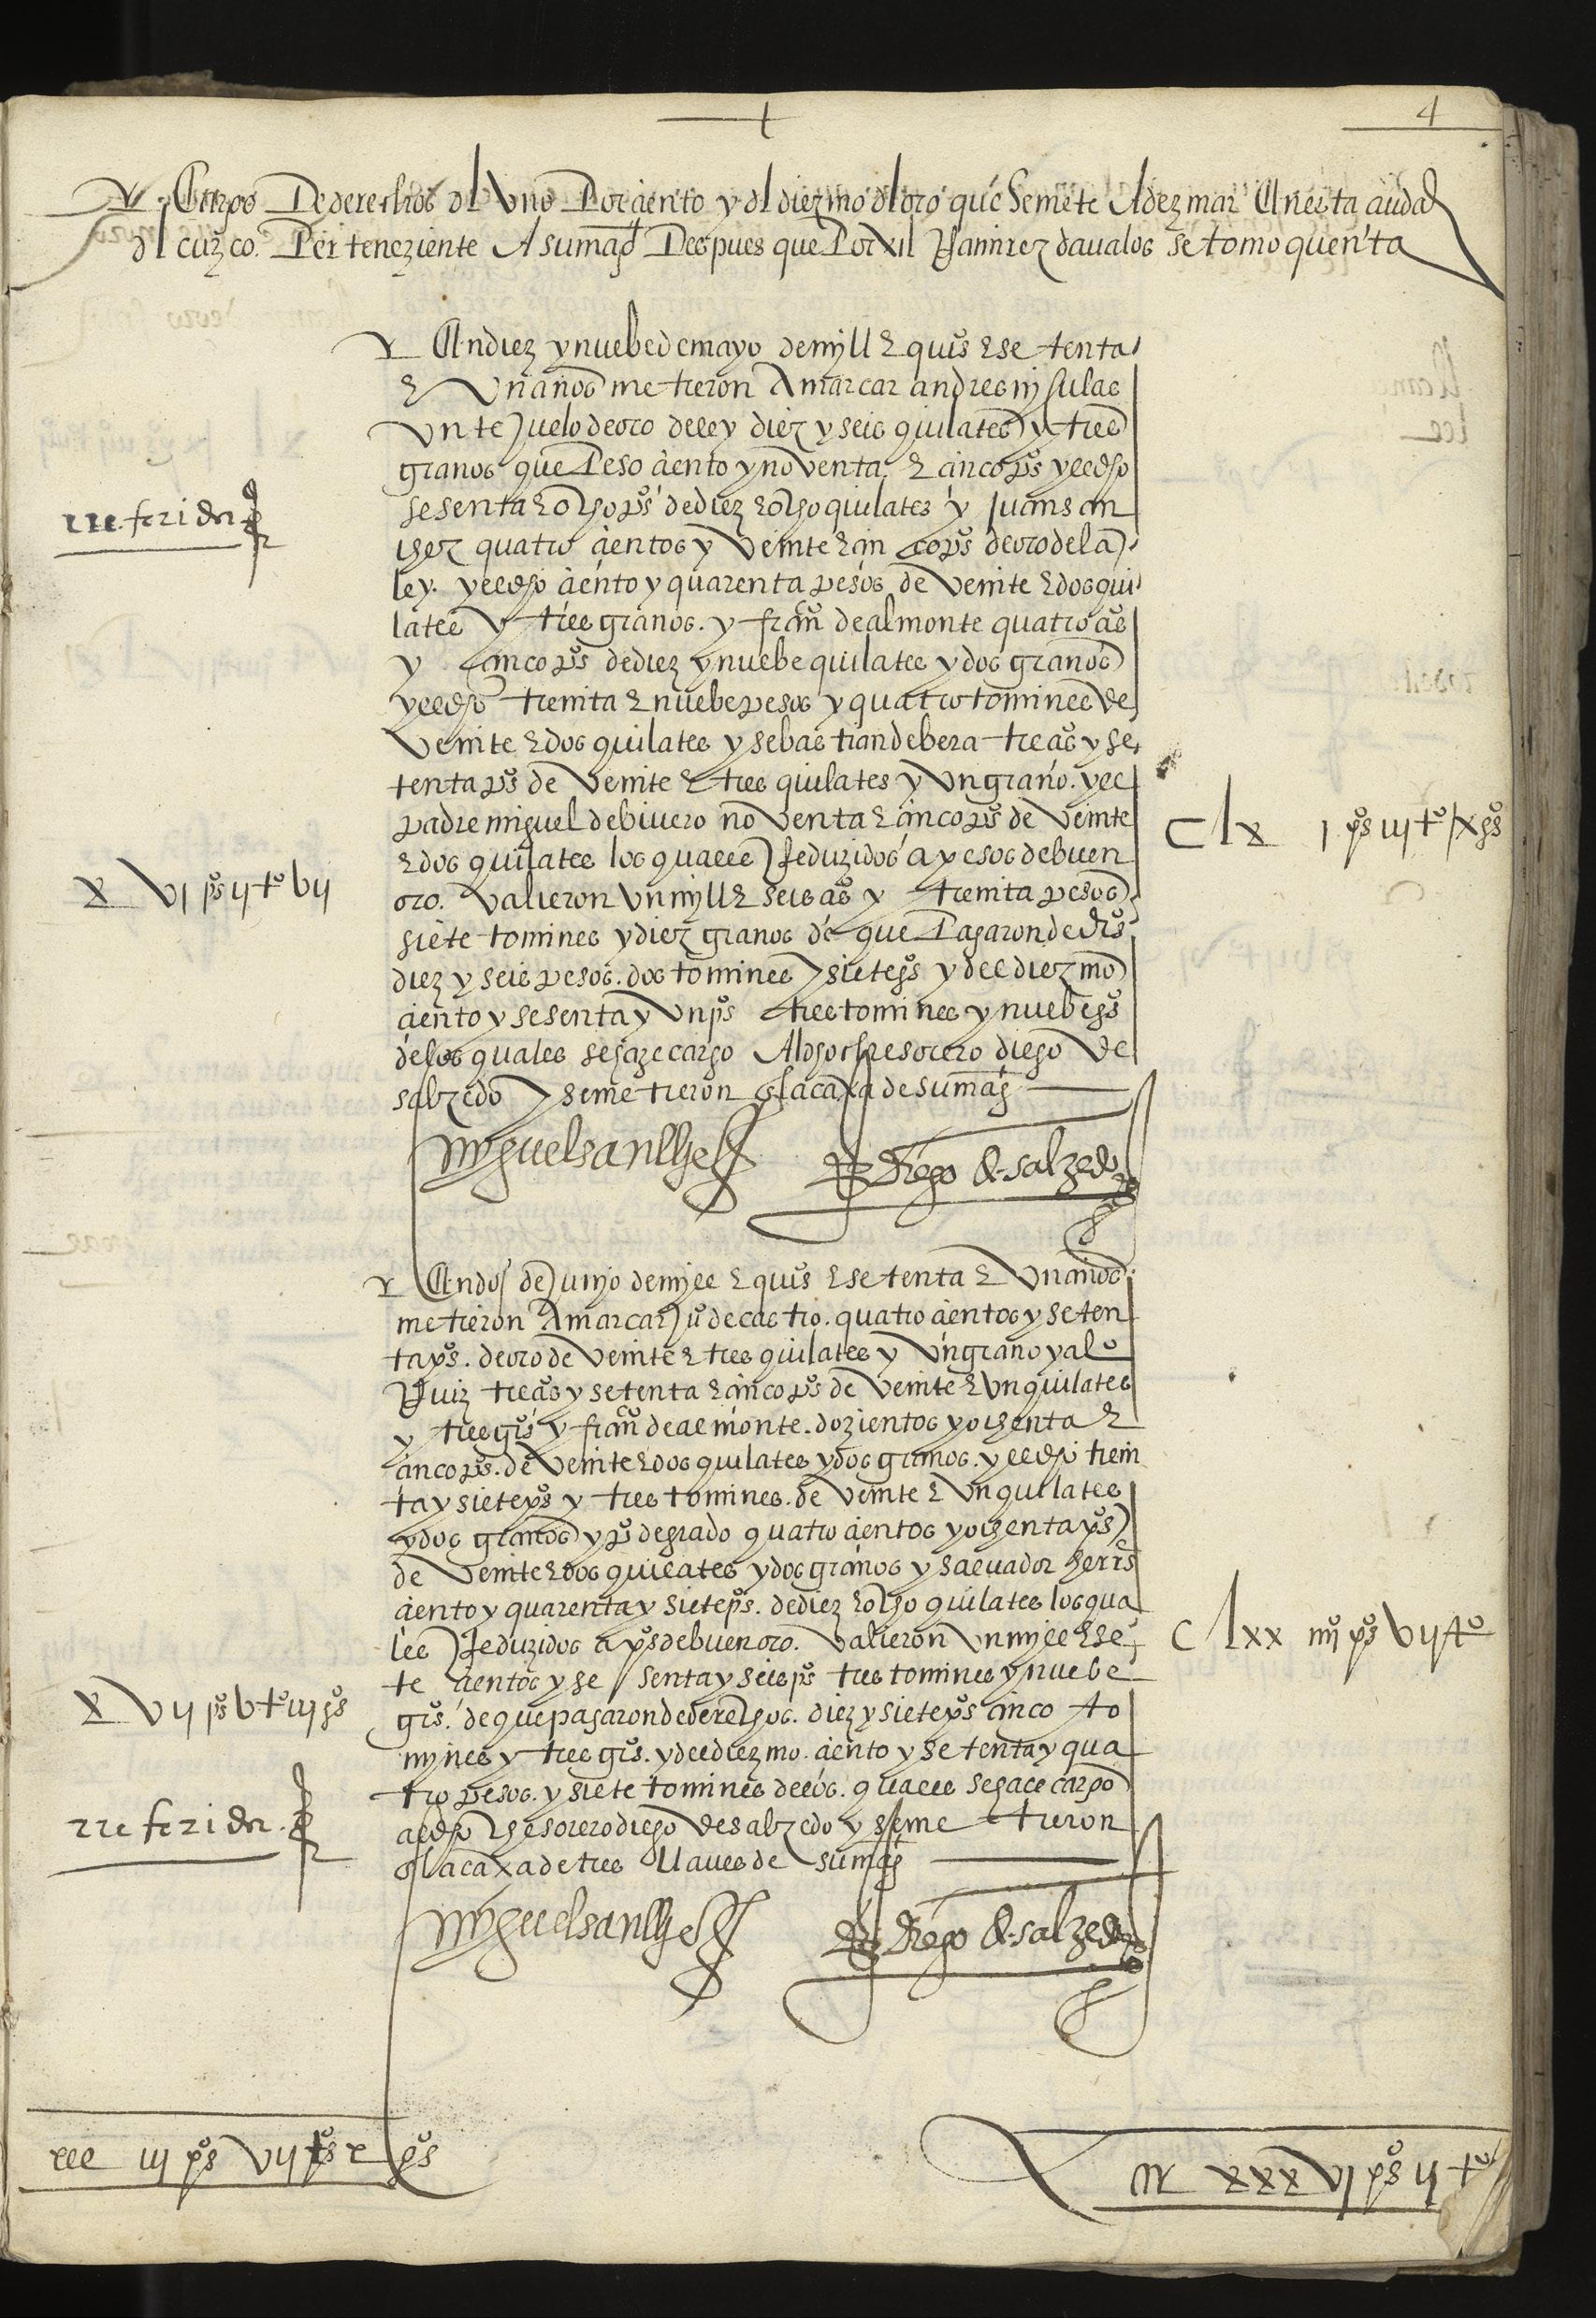 4
Cargo De derechos dl Uno Por ciento y dl diezmo dl oro que Se mete A dezmar En esta ciudad
dl cuzco. Perteneziente A su magd Despues que Por xil Ramirez davalos se tomo quenta
En diez y nuebe de mayo de mjll E quisº E setenta
E Un años metieron A marcar andres
Un tejuelo de oro de ley diez y seis quilates y tres
granos que Peso ciento y noventa E cinco pºs y el dho
sesenta E ocho pºs de diez E ocho quilates y Juan san
chez quatro cientos y Veinte E cin co pºs de oro de la
ley. y el dho ciento y quarenta pesos de Veinte E dos qui
lates y tres granos. y franco de almonte quatroçºs
y cinco pºs de diez y nuebe quilates y dos granos
y el dho treinta E nuebe pesos y quatro tomines de
Veinte E dos quilates y sebastian de bera treçºs y se
tenta pºs de Veinte E tres quilates y Un grano. y el
padre miguel de bivero noventa E cinco pºs de Veinte
E dos quilates los quales Reduzidos a pesos de buen
oro. Valieron Un mjll E seisçºs y treinta pesos
siete tomines y diez granos de que Pagaron de drºs
diez y seis pesos. dos tomines y siete gºs y del diezmo
ciento y sesenta y Un pºs tres tomines y nuebe gºs
de los quales se haze cargo Al dho thesorero diego de
salzedo y se metieron En la caxa de su magd
rreferida
x vj pºs ij tº bij
C lx j pºs iij tº ix gºs
miguel sanchez
diego de salzedo
En dos de Junjo de mjll E quisº E setenta E Un años
metieron A marcar Juº de castro. quatro cientos y seten
ta pºs. de oro de Veinte E tres quilates y Un grano y alº
Ruiz treçºs y setenta E cinco pºs de Veinte E Un quilates
y tres grºs y franco de almonte. dozientos y ochenta E
cinco pºs. de Veinte E dos quilates y dos granos. y el dho trein
ta y siete pºs y tres tomines. de Veinte E Un quilates
y dos granos y pº degrado quatro cientos y ochenta pºs
de Veinte E dos quilates y dos granos y salvador herrs
ciento y quarenta y siete pºs. de diez E ocho quilates los qua
les Reduzidos a pºs de buen oro. Valieron Un mjll E se
te cientos y se senta y seis pºs tres tomines y nuebe
grºs. de que pagaron de derechos. diez y siete pºs cinco to
mjnes y tres grºs. y del diezmo. ciento y setenta y qua
tro pesos. y siete tomines de los. quales se hace cargo
al dho thesorero diego de salzedo y se me tieron
En la caxa de tres llaves de su magd
C lxx iiij pºs vij tº
x vij pºs b tº iij gºs
rreferida
miguel sanchez
diego de salzedo
xxx iij pºs vij tºs x gºs
xxx vj pºs ij tº